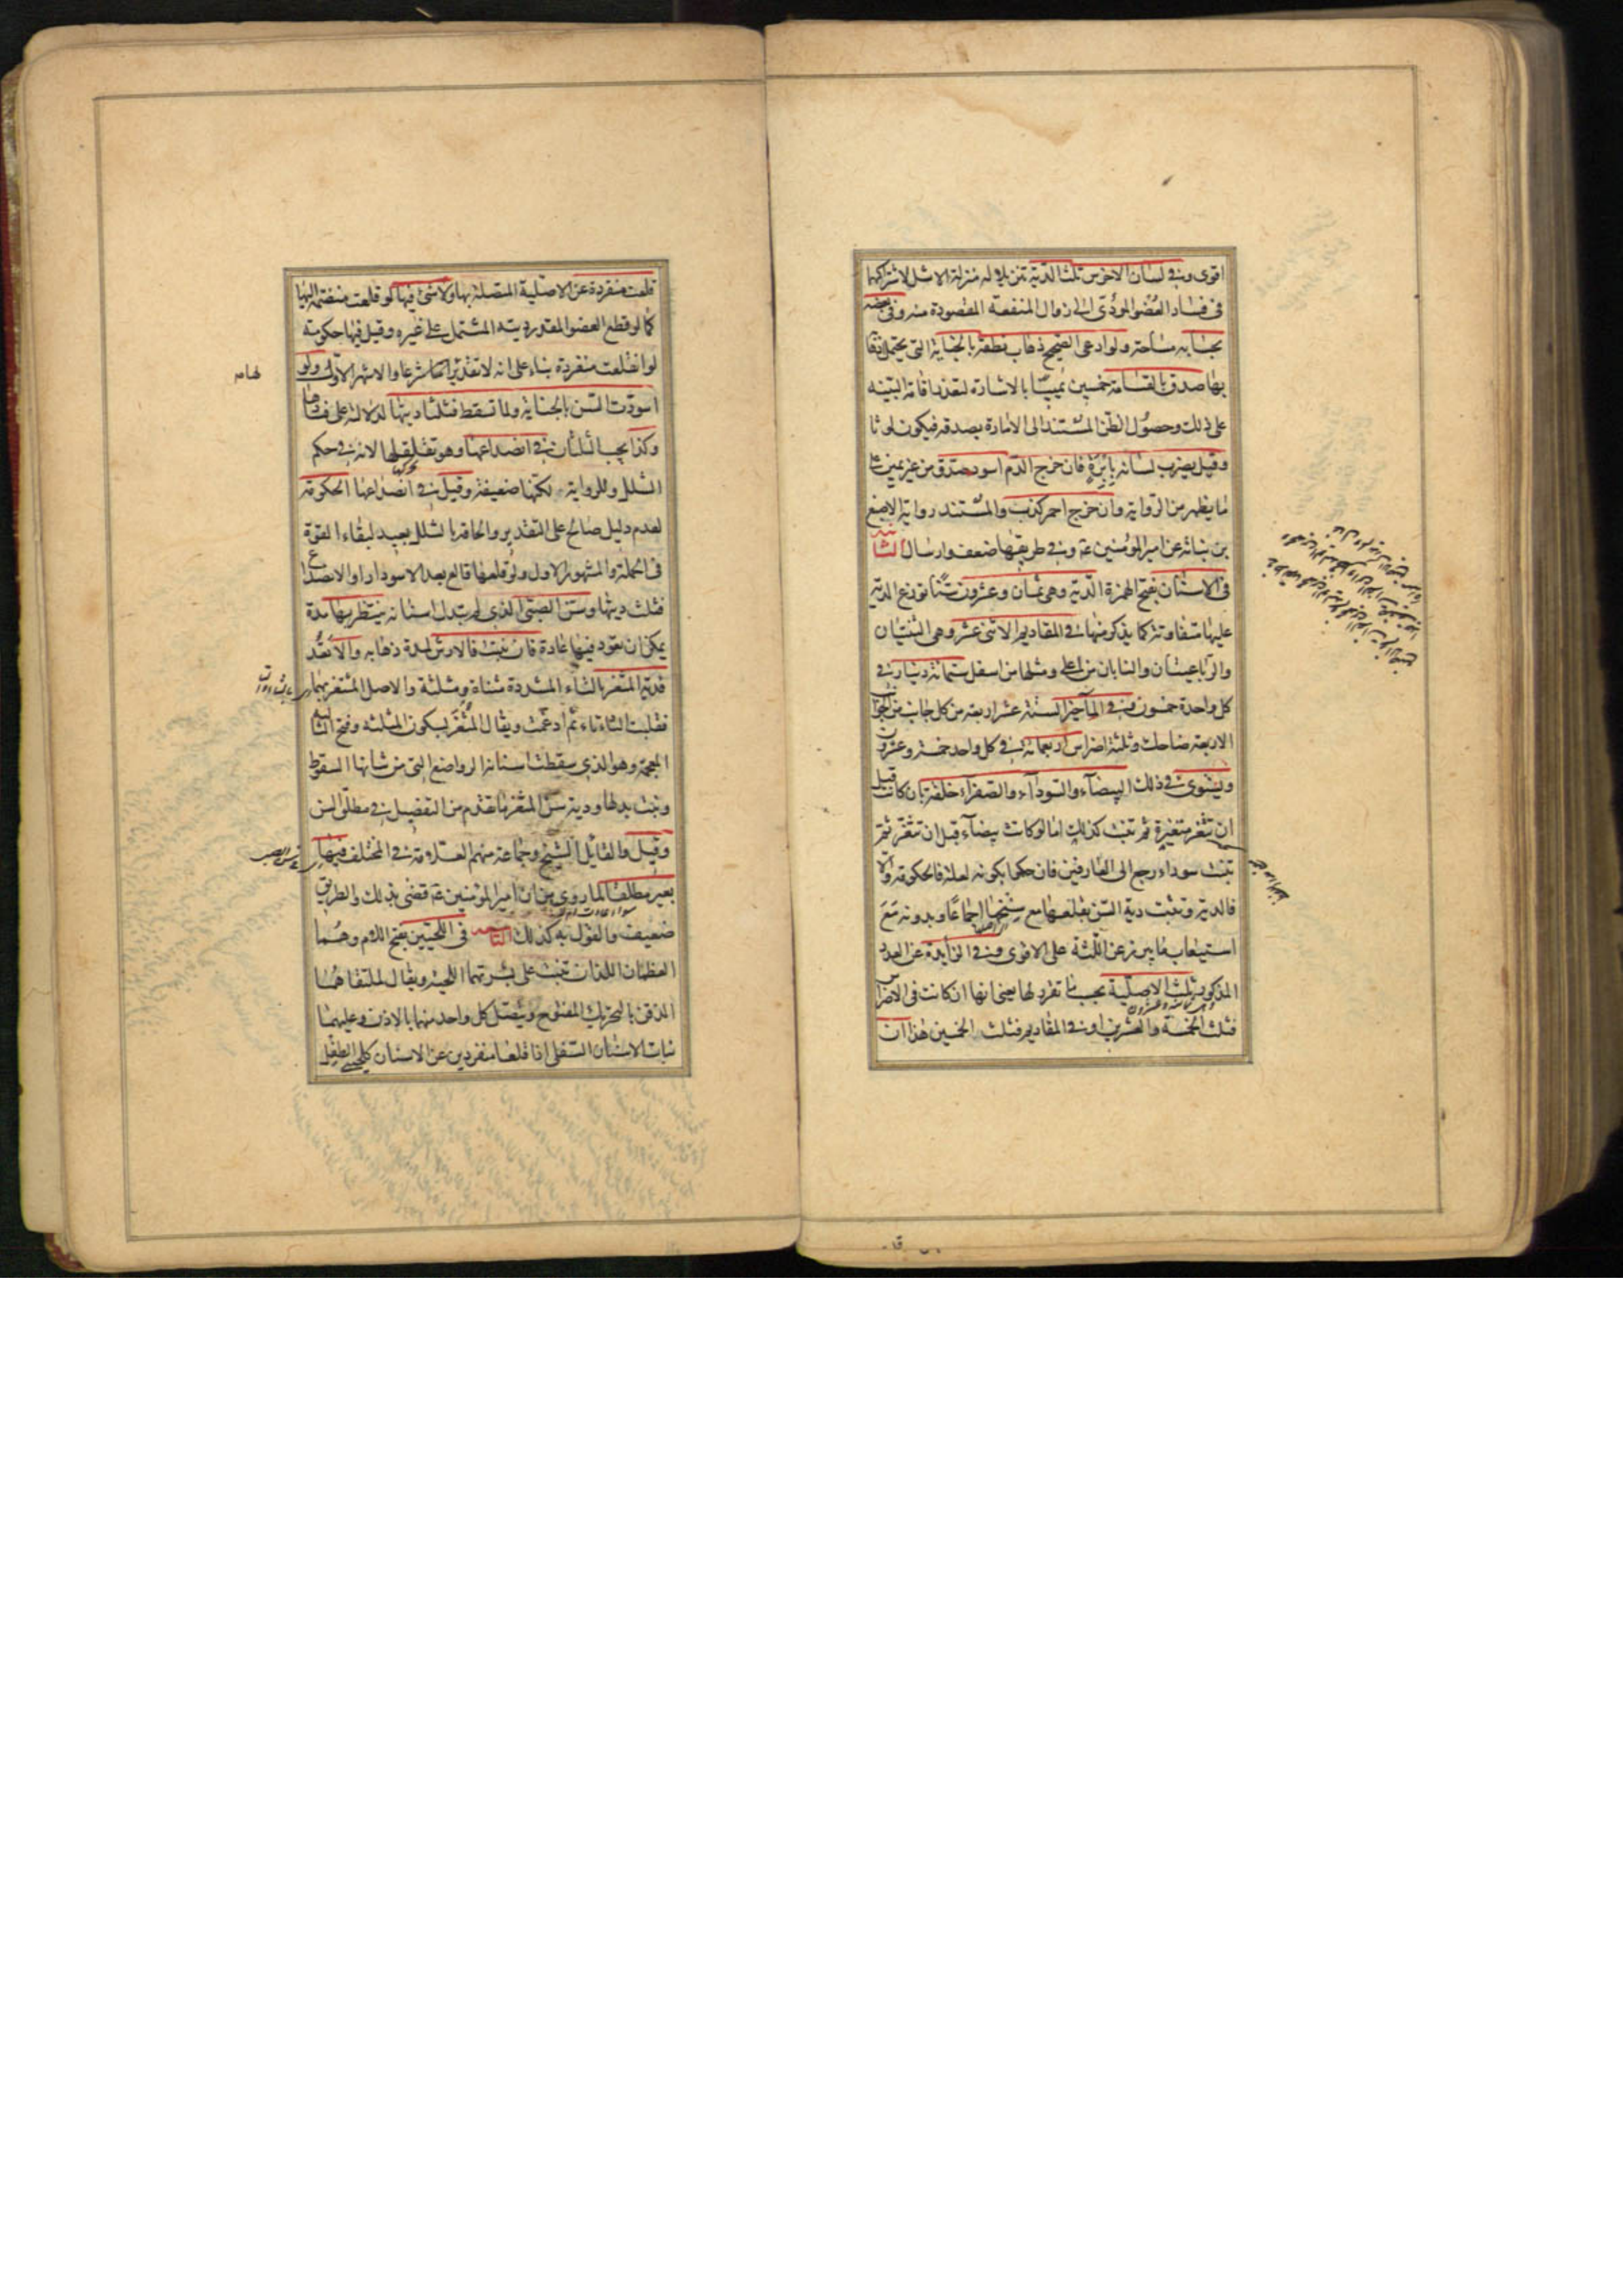 اقوى وفى لسان الاخرس ثلث الدية تنزيلا له منزلة الاشل لاشتراكهما
فى فساد العضو المؤدى الى زوال المنفعة المقصودة منه وفى بعضه
بحسابه مساحة ولو ادعى الصحيح ذهاب نطقه بالجناية التى يحتمل ذهابه
بها صدق بالقسامة خمسين يمينا بالاشارة لتعذر اقامة البينه
على ذلك وحصول الظن المستند الى الامارة بصدقه فيكون لوثا
وقيل يضرب لسانه بابرة فان خرج الدم اسود صدق من غير يمين على
ما يظهر من الرواية وان خرج احمر كذب والمستند رواية الاصبغ
بن نباتة عن امير المؤمنين ع وفى طريقها ضعف وارسال الثامنة
فى الاسنان بفتح الهمزة الدية وهى ثمان وعشرون سنا توزع الدية
عليها متفاوتة كما يذكر منها فى المقاديم الاثنى عشر وهى الثنيتان
والرباعيتان والنابان من اعلى ومثلها من اسفل ستمائة دينار فى
كل واحدة خمسون وفى المآخير الستة عشر اربعة من كل جانب من الجوانب
الاربعة ضاحك وثلثة اضراس اربعمائة فى كل واحد خمسة وعشرون
ويستوى فى ذلك البيضاء والسوداء والصفراء خلقة بان كانت قبل
ان تثغر متغيرة ثم تنبت كذلك اما لو كانت بيضاء قبل ان تثغر ثم
تنبت سوداء رجع الى العارفين فان حكما بكونه لعلة فالحكومة والا
فالدية وتثبت دية السن بقلعها مع سنخها اجماعا وبدونه مع
استيعاب ما يبرز عن اللثة على الاقوى وفى الزايدة عن العدد
المذكور ثلث الاصلية بحسب ما تفرد لها يعنى انها ان كانت فى الاضراس
فثلث الخمسة والعشرين او فى المقاديم فثلث الخمسين هذا ان
قلعت منفردة عن الاصلية المتصلة بها ولا شئ فيها لو قلعت منضمة اليها
كما لو قطع العضو المقدر ديته المشتمل على غيره وقيل فيها حكومة
لو انقلعت منفردة بناء على انه لا تقدير لها شرعا والاشهر الاول ولو
اسودت السن بالجناية ولما تسقط فثلثا ديتها لدلالته على فسادها
وكذا يجب الثلثان فى انصداعها وهو تقلقلها لانه فى حكم
الشلل وللرواية لكنها ضعيفة وقيل فى انصداعها الحكومة
لعدم دليل صالح على التقدير والحاقه بالشلل بعيد لبقاء القوة
فى الجملة والمشهور الاول ولو قلعها قالع بعد الاسوداد او الانصداع
فثلث ديتها وسن الصبى الذى لم تبدل اسنانه ينتظر بها مدة
يمكن ان تعود فيها عادة فان نبت فالارش لمدة ذهابه والا تعد
فدية المتغر بالتاء المشددة مثناة ومثلثة والاصل المثتغر بهما
فقلبت الثاء تاء ثم ادغمت ويقال المثغر بسكون المثلثة وفتح الغين
المعجمة وهو الذى سقطت اسنانه الرواضع التى من شانها السقوط
ونبت بدلها ودية سن المثغر ما تقدم من التفصيل فى مطلق السن
وقيل والقايل الشيخ وجماعة منهم العلامة فى المختلف فيها
بعير مطلقا لما روى من ان امير المؤمنين ع قضى بذلك والطريق
ضعيف والقول به كذلك التاسعة فى اللحيين بفتح اللام وهما
العظمان اللذان تنبت على بشرتهما اللحية ويقال لملتقاهما
الذقن بالتحريك المفتوح ويتصل كل واحد منهما بالاذن وعليهما
نبات الاسنان السفلى اذا قلعا منفردين عن الاسنان كلحيى الطفل